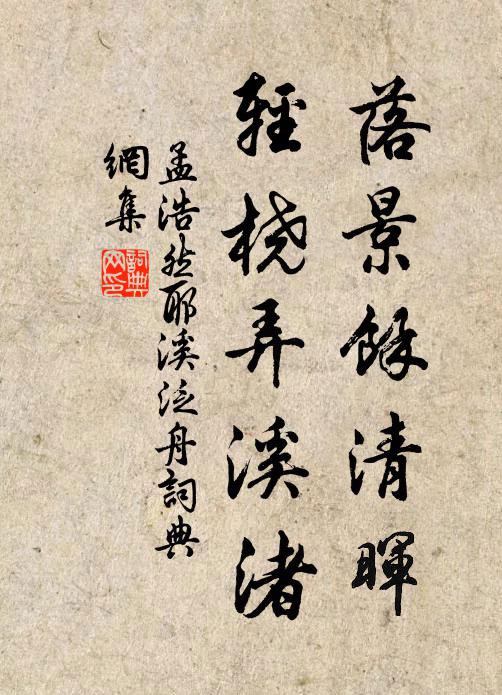 落景餘清暉
輕橈弄溪渚
孟浩然耶溪泛舟詞典
網集
詞典
网印